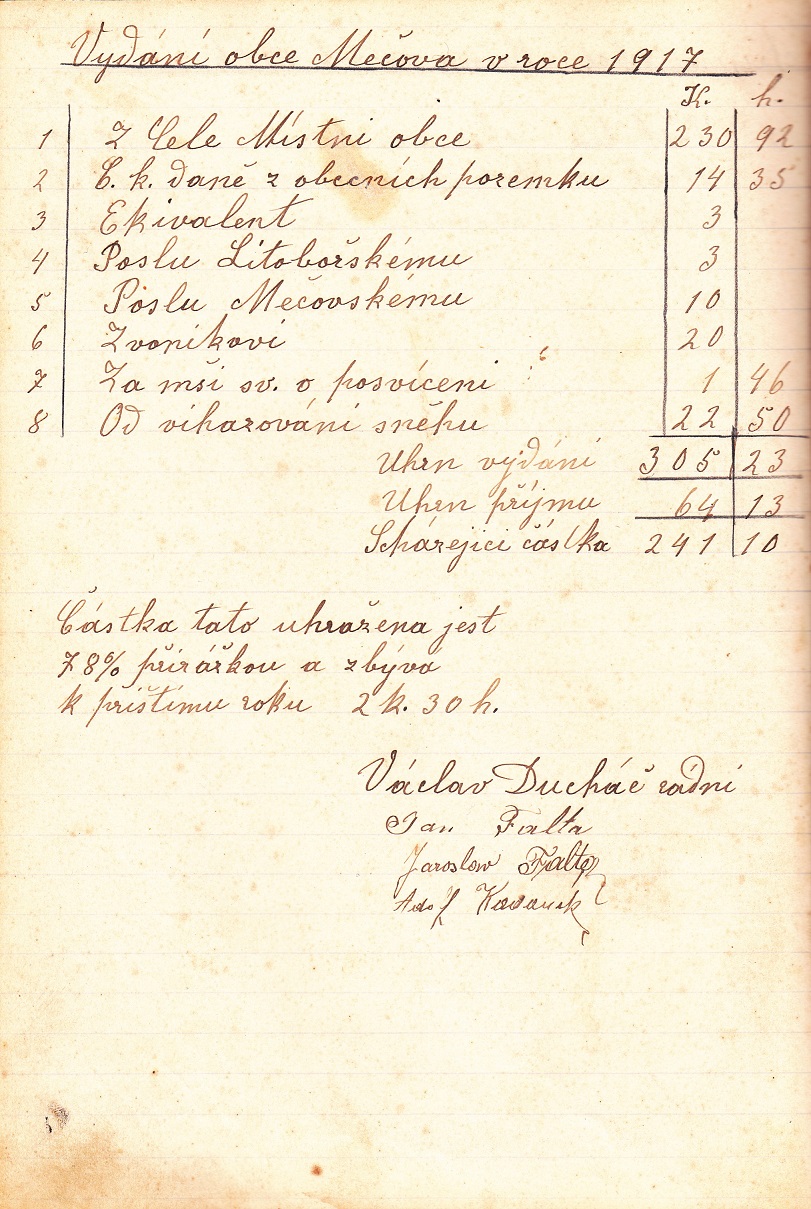 Vydání obce Mečova v roce 1917
K. h.
1 Z Cele Místni obce 230 92
2 C. k. daně z obecních pozemku 14 35
3 Ekivalent 3
4 Poslu Litobořskému 3
5 Poslu Mečovskému 10
6 Zvoníkovi 20
7 Za mši sv. o posvíceni 1 46
8 Od vihazování sněhu 22 50
Uhrn vydání 305 23
Uhrn příjmu 64 13
Scházejici částka 241 10
Částka tato uhražena jest
78% přirážkou a zbývá
k přištimu roku 2 k. 30 h.
Václav Ducháč rádni
Jan Falta
Jaroslaw Falta
Adolf